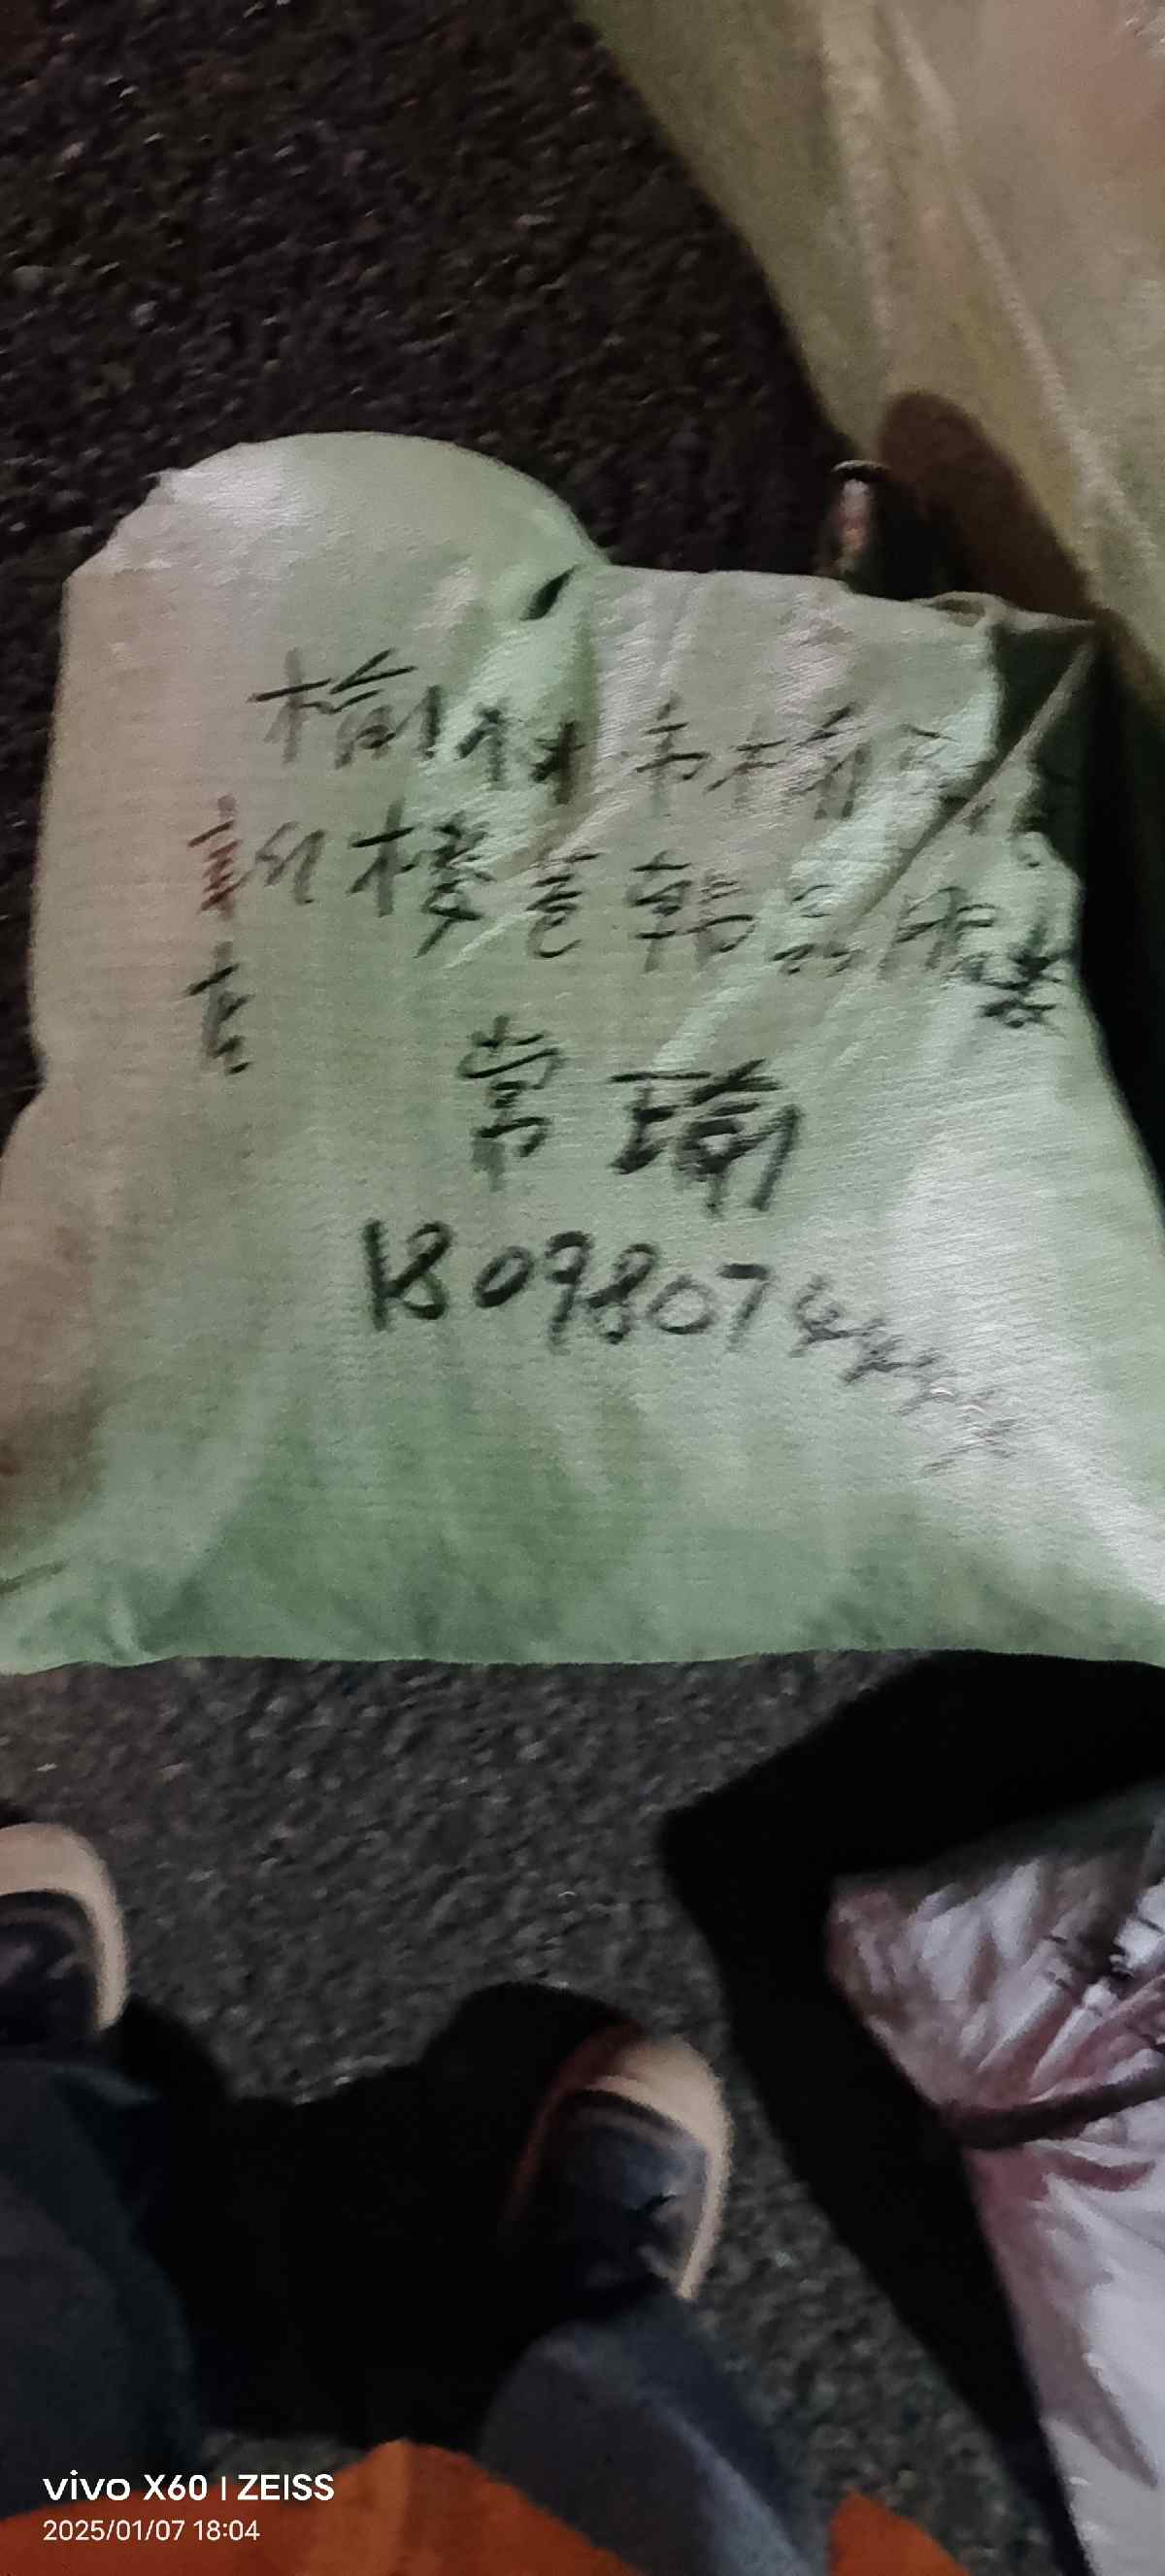 榆林市榆
新楼壹韩品服装
店
常瑜
1809807
vivo X60 | ZEISS
2025/01/07 18:04